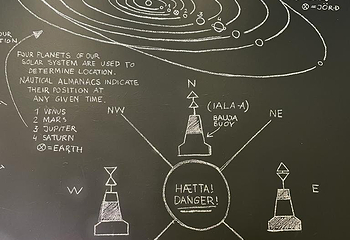 ⊗=JÖRÐ
OUR
TION
FOUR PLANETS OF OUR
SOLAR SYSTEM ARE USED TO
DETERMINE LOCATION.
NAUTICAL ALMANACS INDICATE
THEIR POSITION AT
ANY GIVEN TIME.
1 VENUS
2 MARS
3 JUPITER
4 SATURN
⊗=EARTH
N
(IALA-A)
BAUJA
BUOY
NW
NE
W
HÆTTA!
DANGER!
E